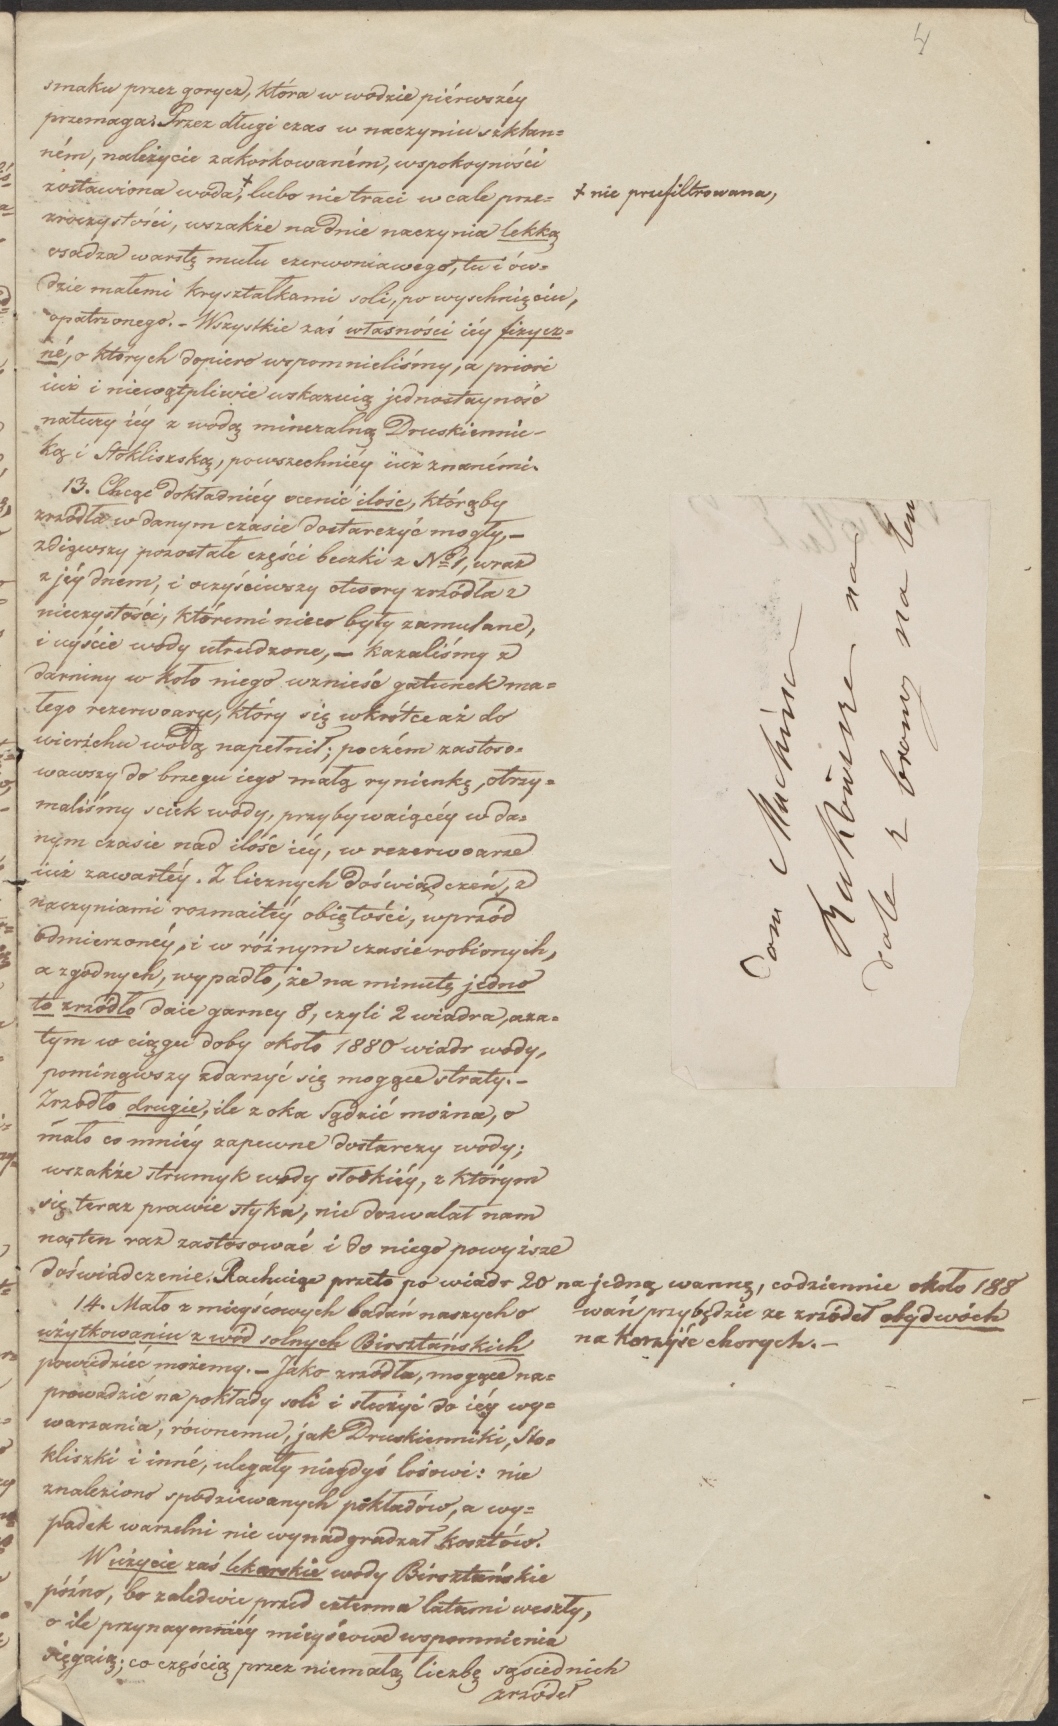 4
smaku przez gorycz, która w wodzie piérwszéy
przemaga. Przez długi czas w naczyniu szklan=
ném, należycie zakorkowaném, w spokoyności
zostawiona woda, + lubo nie traci wcale prze=
+ nie przefiltrowana,
zroczystości, wszakże na dnie naczynia lekką
osadza warstę mułu czerwoniawego, tu i ów=
dzie małemi kryształkami soli, po wyschnięciu,
opatrzonego. - Wszystkie zaś własności iéy fizycz=
né, o których dopiero wspomnieliśmy, a priori
iuż i niewątpliwie wskazuią jednostayność
natury iéy z wodą mineralną Druskiennic-
ką i Stokliszską, powszechniéy iuż znanémi.
13. Chcąc dokładniéy ocenić ilość, którąby
zrzódła w danym czasie dostarczyć mogły, —
zdiąwszy pozostałe części beczki z No 1, wraz
z jéy dnem, i oczyściwszy otwory zrzódła z
nieczystości, którémi nieco były zamulane,
i uyście wody utrudzone, — kazaliśmy z
darniny w koło niego wznieść gatunek ma=
łego rezerwoaru, który się wkrótce aż do
wierzchu wodą napełnił; poczém zastoso=
wawszy do brzegu iego małą rynienkę, otrzy=
maliśmy sciek wody, przybywaiącéy w da=
nym czasie nad ilość iéy, w rezerwoarze
iuż zawartéy. Z licznych doświadczeń, z
naczyniami rozmaitéy obiętości, wprzód
odmierzonéy, i w różnym czasie robionych,
a zgodnych, wypadło, że na minutę jedno
to zrzódło daie garncy 8, czyli 2 wiadra, a za=
tym w ciągu doby około 1880 wiadr wody,
pominąwszy zdarzyć się mogące straty. -
Zrzodło drugie, ile z oka sądzić można, o
mało co mniéy zapewne dostarczy wody;
wszakże strumyk wody słodkiéy, z którym
się teraz prawie styka, nie dozwalał nam
na ten raz zastosować i do niego powyższe
doświadczenie. Rachuiąc przeto po wiadr 20 na jedną wannę, codziennie około 188
wań przybędzie ze zrzódeł obydwóch
na korzyść chorych. —
14. Mało z mieyścowych badań naszych o
użytkowaniu z wód solnych Birsztańskich
powiedzieć możemy. — Jako zrzódła, mogące na=
prowadzić na pokłady soli i służyć do iéy wy=
warzania, równemu, jak Druskienniki, Sto=
kliszki i inné, ulegały niegdyś losowi: nie
znaleziono spodziewanych pokładów, a wy=
padek warzelni nie wynadgradzał kosztów.
W użycie zaś lekarskie wody Birsztańskie
późno, bo zaledwie przed czterma latami weszły,
o ile przynaymniéy mieyścowe wspomnienia
sięgaią; co częścią przez niemałą liczbę sąsiednich
zrzódeł
Dom
na
dole z bramy na lew